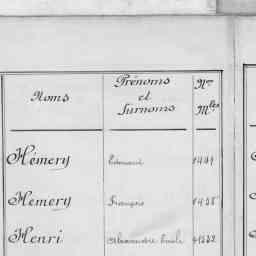 Noms
Prénoms
et
Surnoms
Nos
Mles
Hémery
Edouard
Hemery
François
Henri
Alexandre Emile